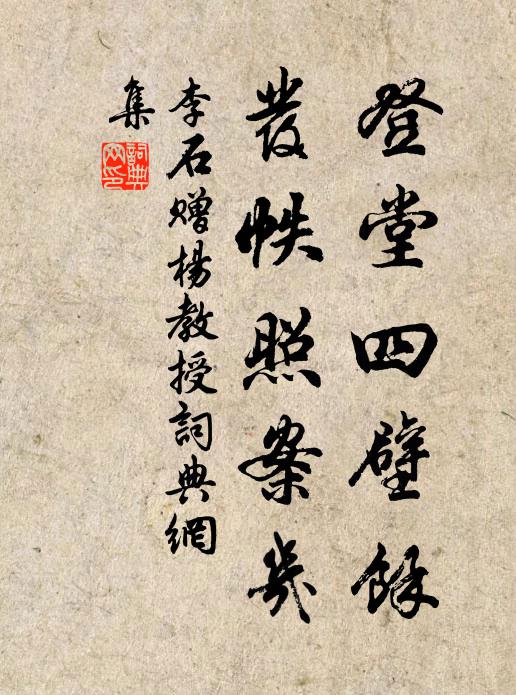 登堂四壁餘
發帙照案几
李石贈楊教授詞典網
集
詞典網印